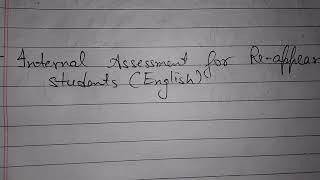 - Internal Assessment for Re-appear
students (English)